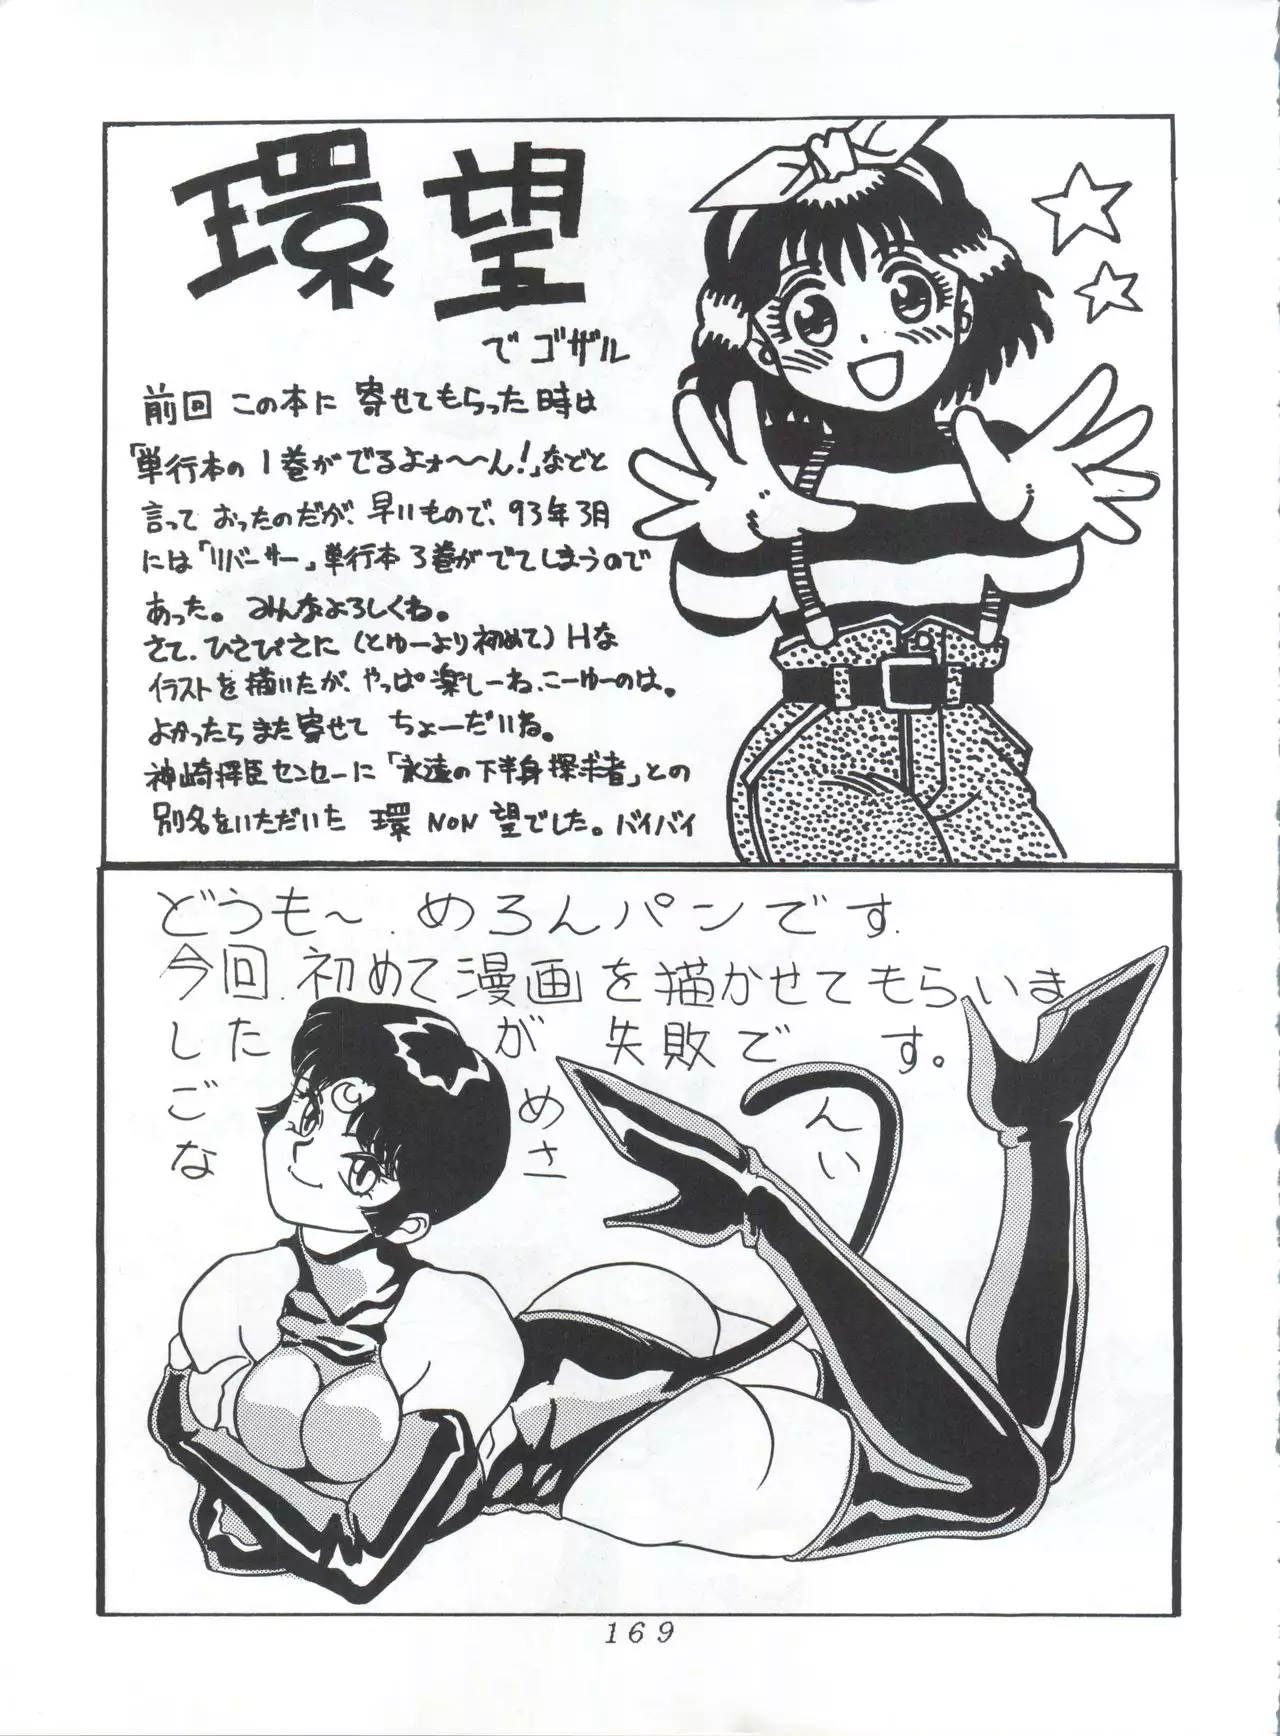 環望
でゴザル
前回この本に寄せてもらった時は
「単行本の1巻がでるよォ〜〜ん!」などと
言っておったのだが、早いもので、93年3月
には「リバーサー」単行本3巻がでてしまうので
あった。みんなよろしくね。
さて、ひさびさに(とゆーより初めて)Hな
イラストを描いたが、やっぱ楽しーね、こーゆーのは。
よかったらまた寄せてちょーだいね。
神崎将臣センセーに「永遠の下半身探求者」との
別名をいただいた 環 NON 望でした。バイバイ
どうも〜.めろんパンです.
今回.初めて漫画を描かせてもらいま
したが失敗です。
ごめん
なさい
169